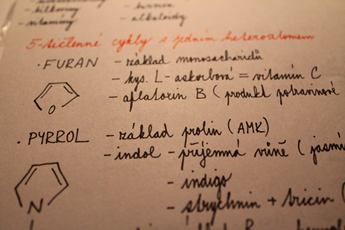 - bílkoviny
- vitamíny
- hormon
- alkaloidy
5-tičlenné cykly s jedním heteroatomem
· FURAN - základ monosacharidů
- kys. L-askorbová = vitamín C
- aflatoxin B (produkt potravinové
O
· PYRROL - základ prolin (AMK)
- indol - příjemná vůně (jasmí
- indigo
- strychnin +
N